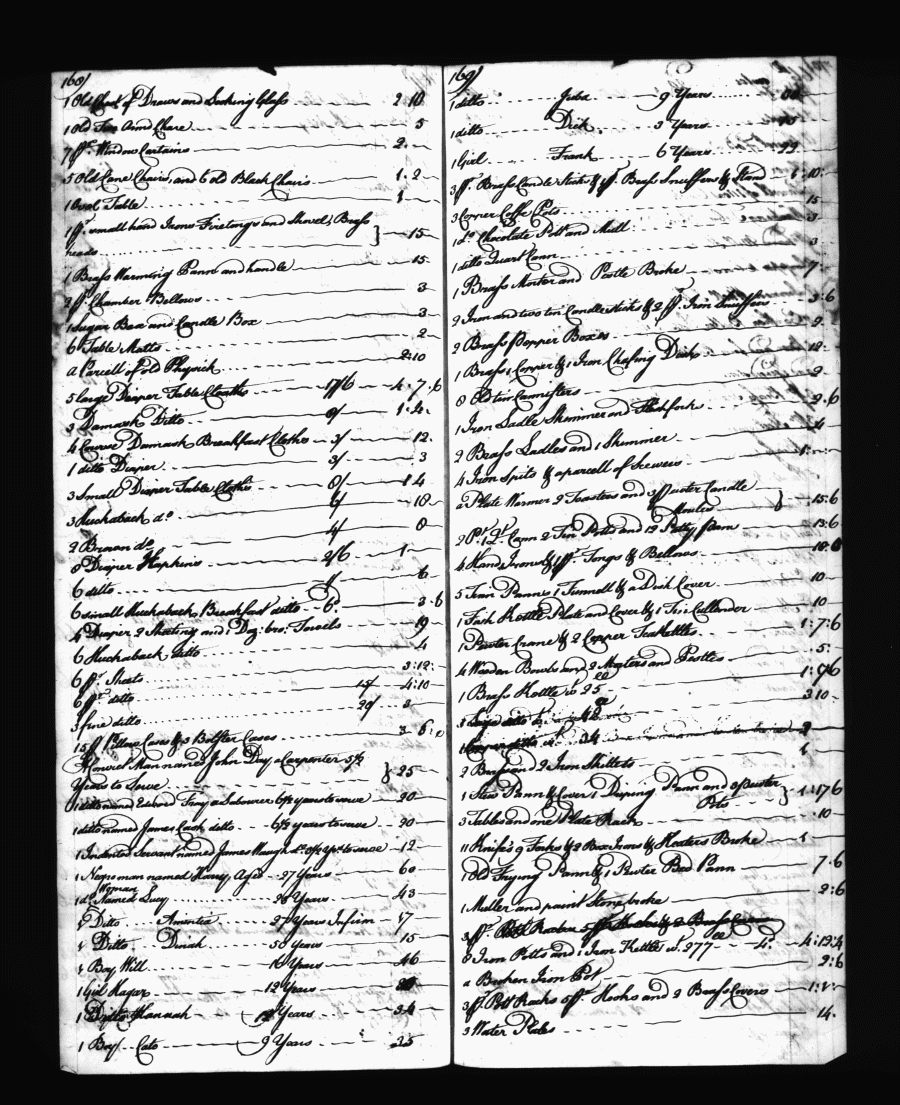 168/
1 Old Chest of Draws and Looking Glass 2 10
1 Old Two Armd Chare 5
7 pr. Window Curtains 2
5 Old Cane Chairs and 6 old Black Chairs 1 2
1 Oval Table 1
1 pr. small hand Irons Firetongs and Shovel, Brass
heads } 15
1 Brass Warming Pann and handle 15
2 pr. Chamber Bellows 3
1 Sugar Box and Candle Box 3
6 Table Matts 2
a Parcell of old Physick 2:10
5 large Diaper Table Cloaths 17/6 4:7:6
3 Damask Ditto 8/ 1:4
4 Coarse Damask Breakfast Cloths 3/ 12
1 ditto Diaper 3/ 3
3 Small Diaper Table Cloths 8/ 1 4
3 Huckaback do. 6/ 18
2 Brown do. 4/ 8
8 Diaper Napkins 2/6 1
6 ditto 1/ 6
6 small Huckaback Breakfast ditto 6d. 3
4 Diaper 2 Sheeting and 1 Doz: bro: Towels 19
6 Huckaback Ditto 4
6 pr. Sheets 3:12
6 pr. ditto 15/ 4:10
3 fine ditto 20/ 3
15 pr Pillow Cases & 3 Bolster Cases 3 6
1 Convict Man named John Day a Carpenter 5½
Years to Serve } 25
1 ditto named Edward a Labourer 6½ years to serve 20
1 ditto named James Cash ditto 6½ years to serve 20
1 Indented Servant named James Waugh 12
1 Negro man named Harry Aged 27 Years 60
1 do. Woman Named Lucy 26 Years 43
1 Ditto Aminta 27 Years Infirm 17
1 Ditto Dinah 50 Years 15
1 Boy Will 16 Years 46
1 Girl Hagar 12 Years
1 Ditto Hannah Years 34
1 Boy Cato 9 Years 25
169/
1 ditto Juba 9 Years
1 ditto Dick 3 Years
1 Girl Frank 6 Years 22
3 pr. Brass Candlesticks & 1 pr. Brass Snuffers & Stand 1 10
3 Copper Coffe Pots 15
1 do. Chocolate Pott and Mill 3
1 ditto Quart Cann 3
1 Brass Morter and Pestle Broke 7
9 Iron and two tin Candlesticks & 2 pr. Iron Snuffers 3:6
2 Brass Popper Boxes 2
1 Brass, 1 Copper & 1 Iron Chafing Dish 12
8 Old tin Cannisters 2
1 Iron Ladle Skimmer and Fleshfork 2:6
2 Brass Ladles and 1 Skimmer 4
4 Iron Spits & a parcell of Scewers 1
a Plate Warmer 2 Toasters and 3 Pewter Candle
Moulds } 15:6
2 Pt. 1 Qt. Cann 2 Tin Potts and 12 Patty pann 13:6
4 Hand Irons & 1 pr. Tongs & Bellows 10
5 Tinn Panns 1 Funnell & a Dish Cover 10
1 Fish Kettle Plate and Cover & 1 Tin Cullender 10
1 Pewter Crane & 2 Copper TeaKettles 1:7:6
4 Wooden Bowls and 2 Morters and Pestles 5
1 Brass Kettle wt. 25 1:17:6
1 Large ditto 3 10
1 Copper ditto wt. 34
2 Brass and 2 Iron Skillets 1
1 Stew Pann & Cover 1 Dripping Pann and 2 Pewter
Pots } 1:17:6
3 Tubbs and one Plate Rack 10
11 Knifes 9 Forks & 2 Box Irons & Heaters Broke 1
1 Old Frying Pann & 1 Pewter Bed Pann 7:6
1 Muller and paint Stone broke 2:6
3 pr. Pott Racks 5 pr. Hooks & 2 Brass Covers
8 Iron Potts and 1 Iron Kettle wt. 277 4d. 4:12:4
a Broken Iron Pot 2:6
3 pr Pott Racks 5 pr. Hooks and 2 Brass Covers 1:1
3 Water Pales 14